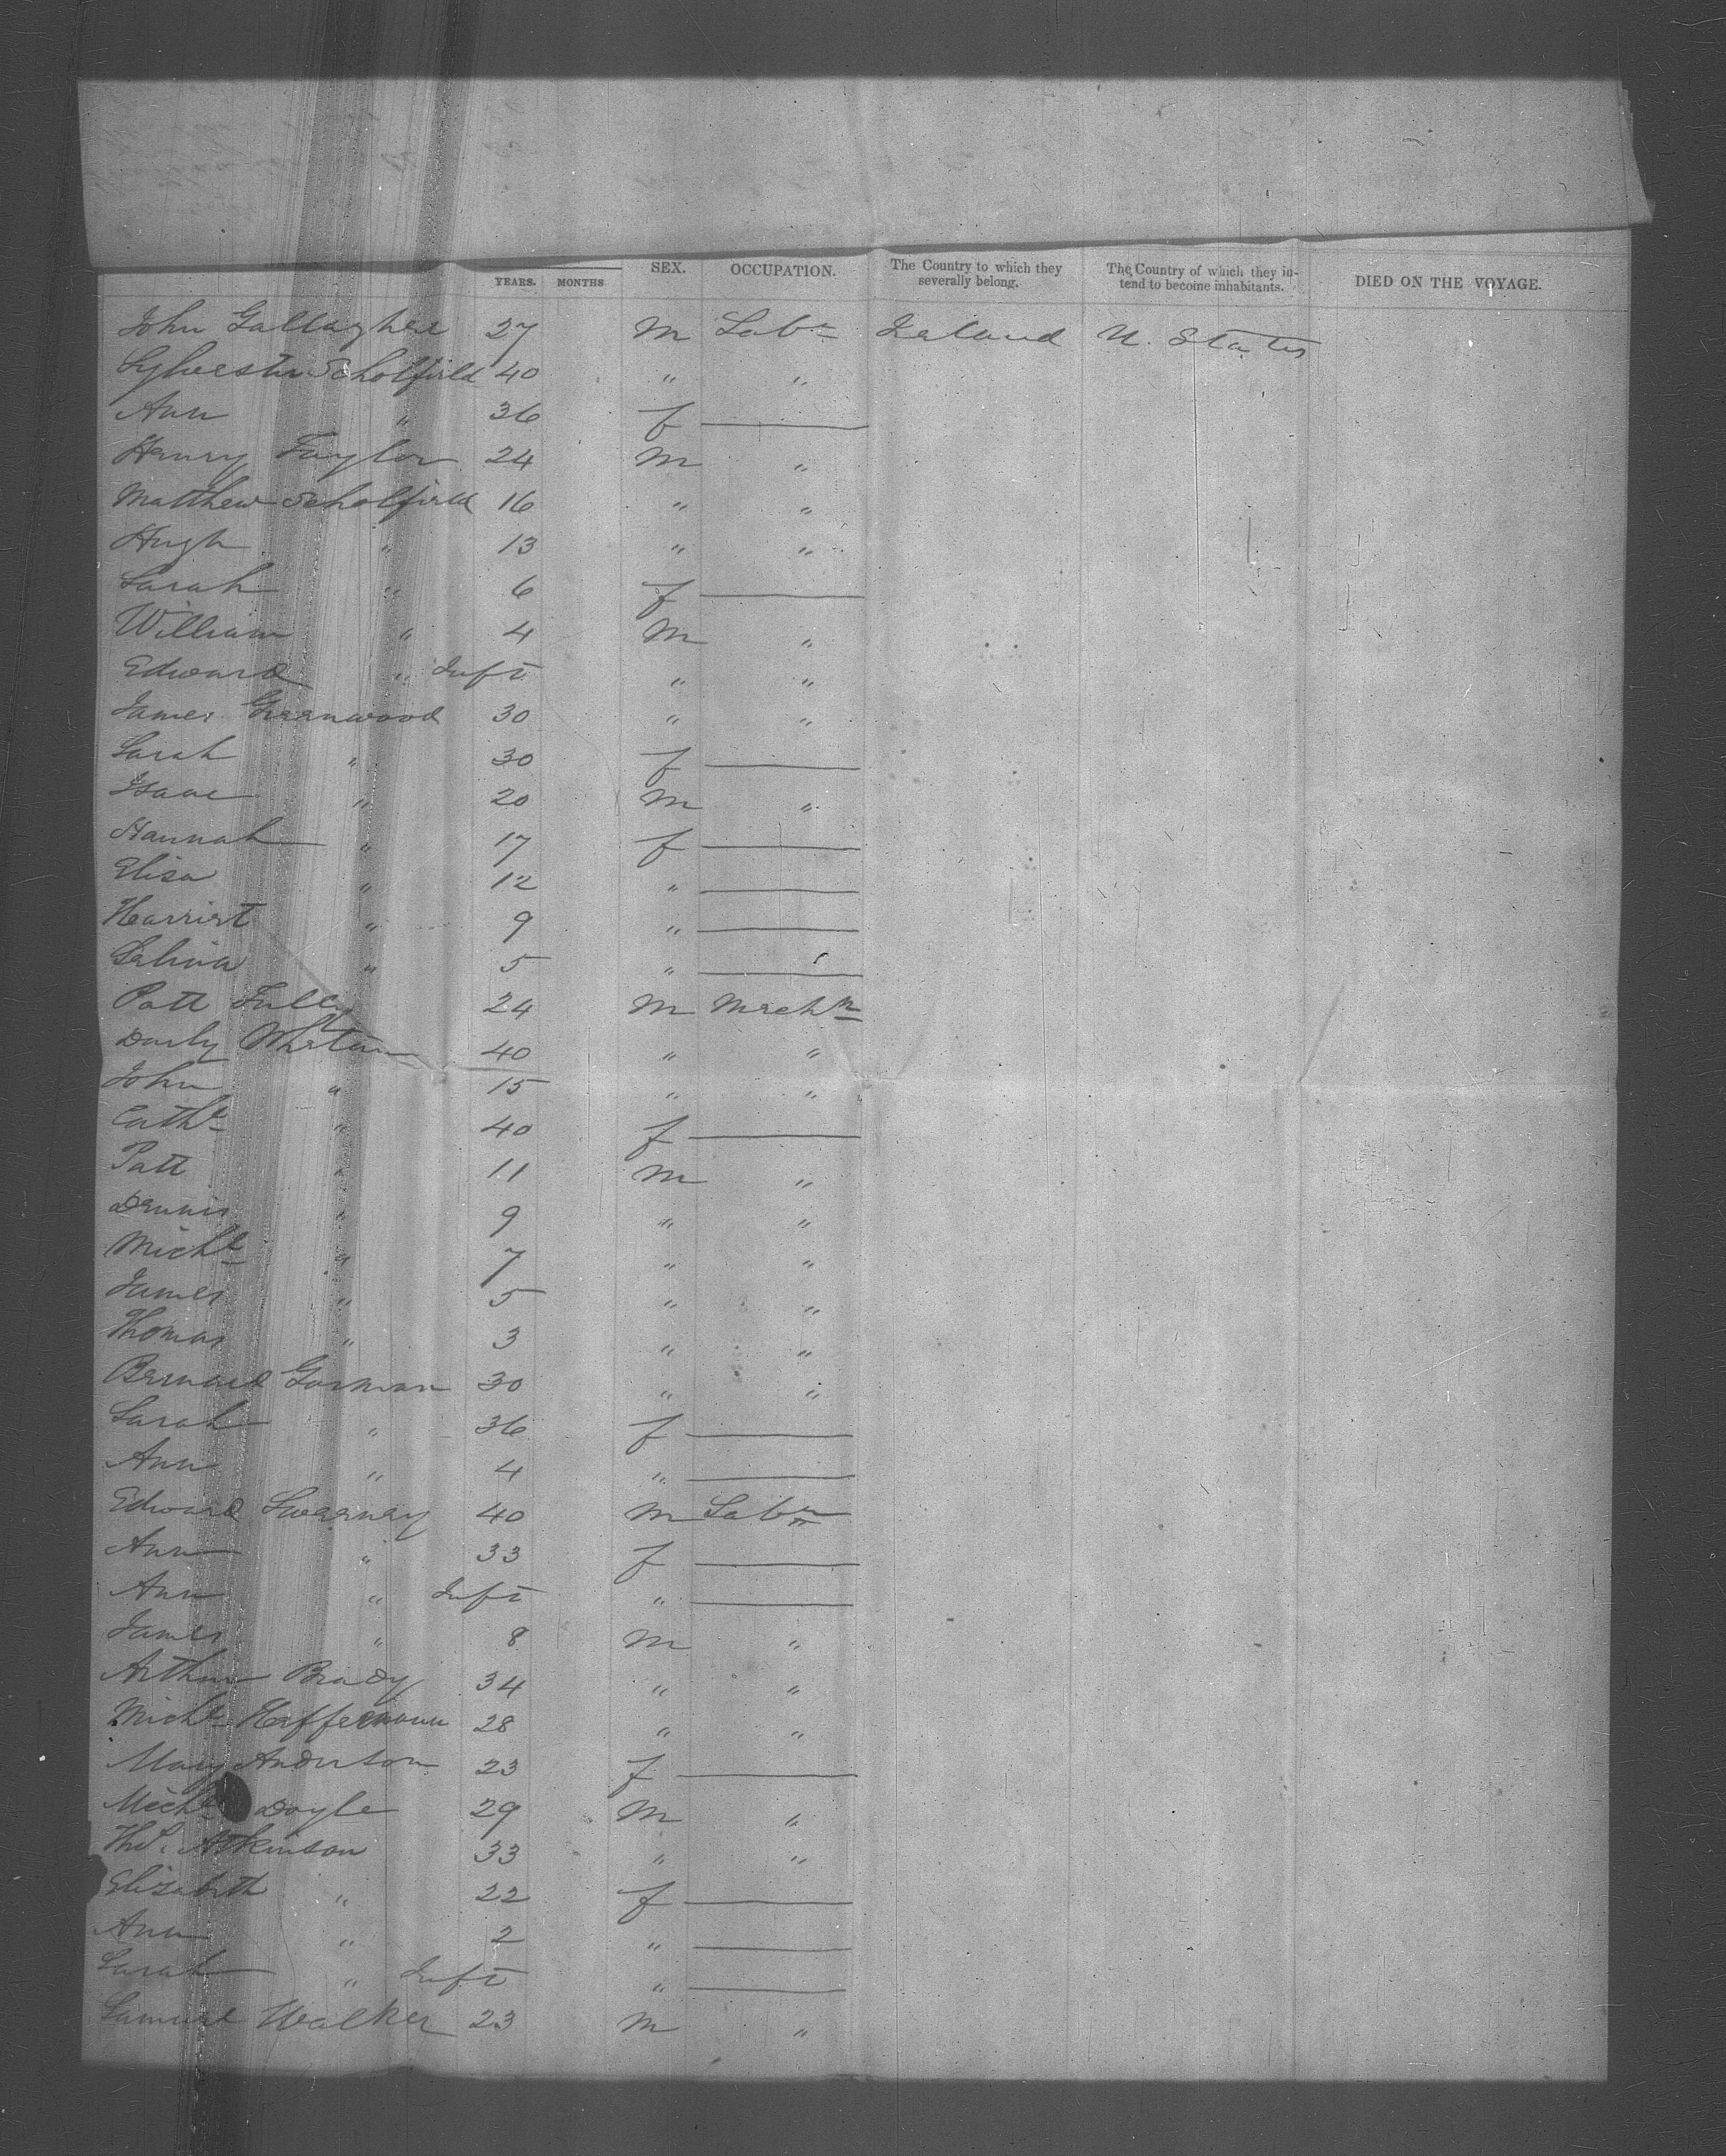 YEARS. MONTHS SEX. OCCUPATION. The Country to which they severally belong. The Country of which they intend to become inhabitants. DIED ON THE VOYAGE.
John Gallagher 27 M Labr Ireland U. States
Sylvester Scholfield 40 " "
Ann " 36 f
Henry Taylor 24 M "
Matthew Scholfield 16 " "
Hugh " 13 " "
Sarah " 6 f
William " 4 M "
Edward " Inft " "
James Greenwood 30 " "
Sarah " 30 f
Isaac " 20 M "
Hannah " 17 f
Elisa " 12 "
Harriet " 9 "
Selina " 5 "
Patt 24 M Mechn
Darby 40 " "
John " 15 " "
Cathe " 40 f
Patt " 11 M "
Dennis " 9 " "
Michl " 7 " "
James " 5 " "
Thomas " 3 " "
Bernard Gorman 30 " "
Sarah " 36 f
Ann " 4 "
Edward Sweeney 40 M Labr
Ann " 33 f
Ann " Inft "
James " 8 M "
Arthur Brady 34 " "
Michl Heffernann 28 " "
Mary Anderson 23 f
Michl Doyle 29 M "
Thos. Atkinson 33 " "
Elizabeth " 22 f
Ann " 2 "
Sarah " Inft "
Samuel Walker 23 M "